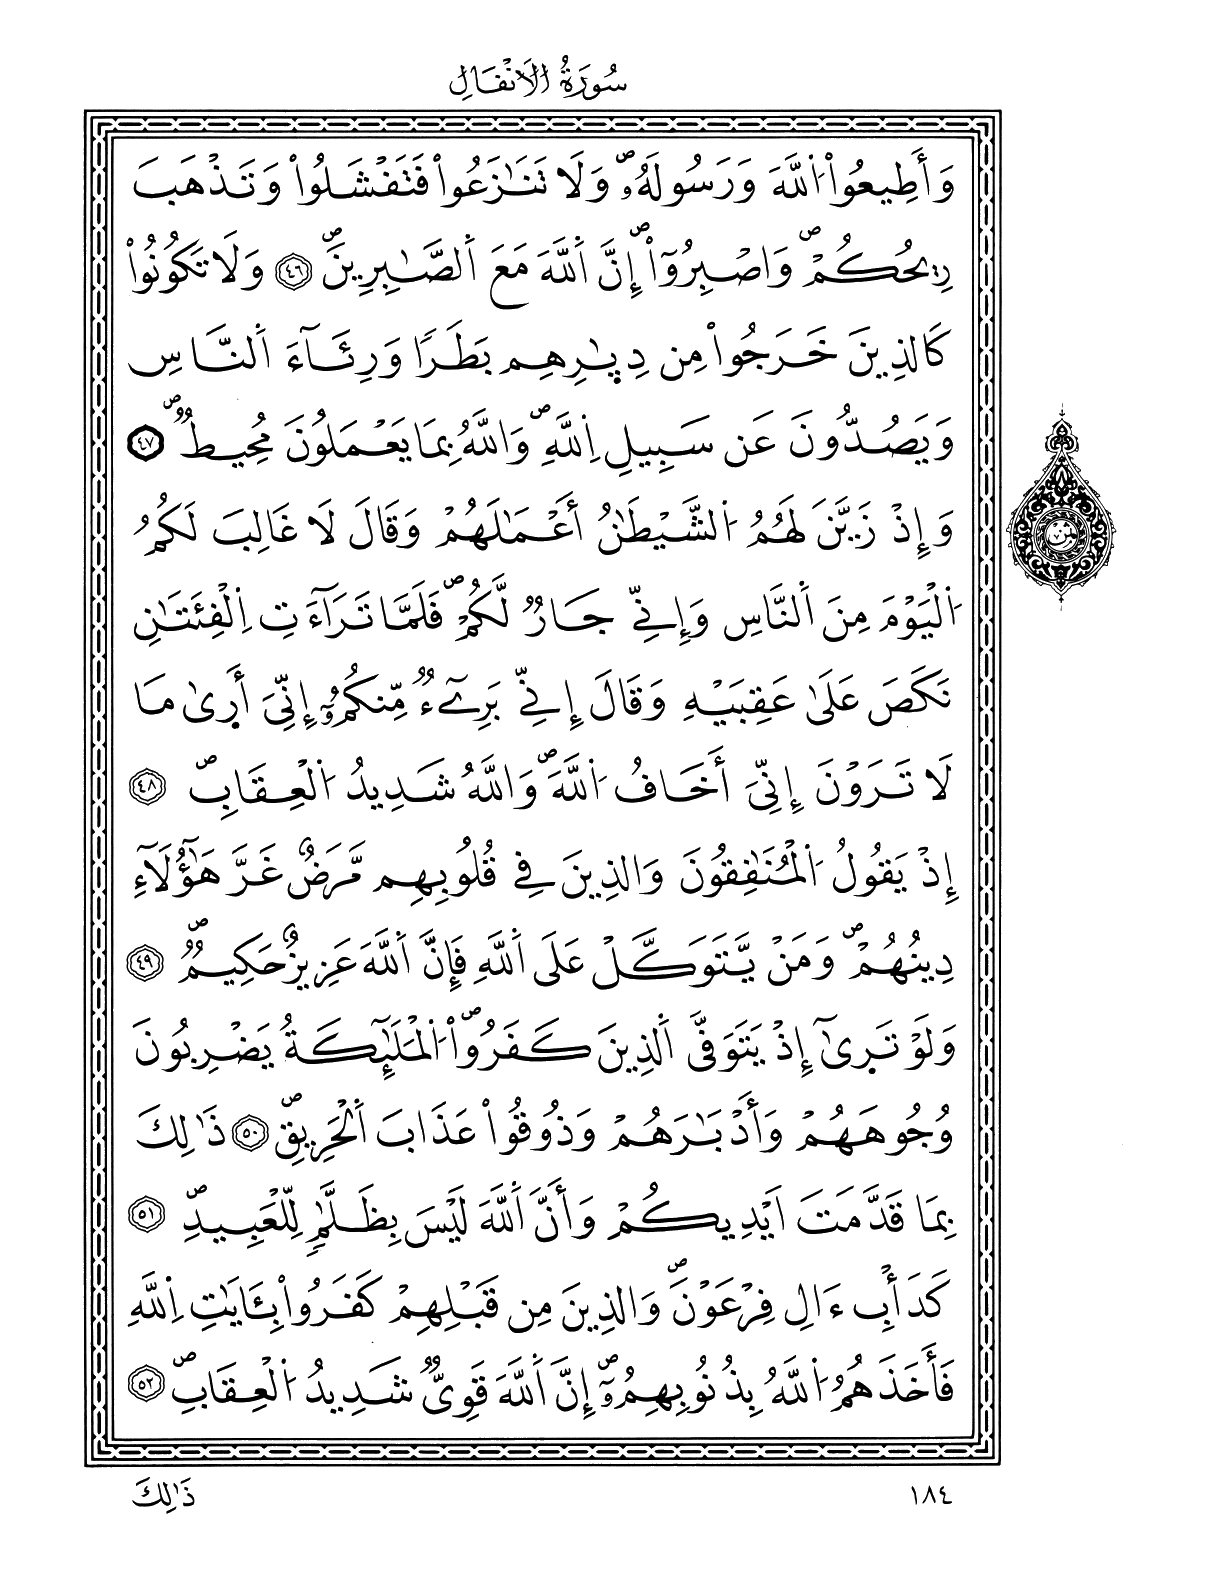 سُورَةُ الْأَنْفَالِ
وَأَطِيعُواْ اُللَّهَ وَرَسُولَهُۥۖ وَلَا تَنَٰزَعُواْ فَتَفْشَلُواْ وَتَذْهَبَ
رِيحُكُمْۖ وَاصْبِرُوٓاْۖ إِنَّ اَللَّهَ مَعَ اَلصَّٰبِرِينَۖ ٤٦ وَلَا تَكُونُواْ
كَالذِينَ خَرَجُواْ مِن دِيٰ۪رِهِم بَطَرًا وَرِئَآءَ اَلنَّاسِ
وَيَصُدُّونَ عَن سَبِيلِ اِللَّهِۖ وَاللَّهُ بِمَا يَعْمَلُونَ مُحِيطٌۖ ٤٧
وَإِذْ زَيَّنَ لَهُمُ اُلشَّيْطَٰنُ أَعْمَٰلَهُمْ وَقَالَ لَا غَالِبَ لَكُمُ
اُلْيَوْمَ مِنَ اَلنَّاسِ وَإِنِّي جَارٌ لَّكُمْۖ فَلَمَّا تَرَآءَتِ اِلْفِئَتَٰنِ
نَكَصَ عَلَىٰ عَقِبَيْهِ وَقَالَ إِنِّي بَرِيٓءٌ مِّنكُمُۥٓ إِنِّيَ أَر۪ىٰ مَا
لَا تَرَوْنَ إِنِّيَ أَخَافُ اُللَّهَۖ وَاللَّهُ شَدِيدُ اُلْعِقَابِۖ ٤٨
إِذْ يَقُولُ اُلْمُنَٰفِقُونَ وَالذِينَ فِي قُلُوبِهِم مَّرَضٌ غَرَّ هَٰٓؤُلَآءِ
دِينُهُمْۖ وَمَنْ يَّتَوَكَّلْ عَلَى اَللَّهِ فَإِنَّ اَللَّهَ عَزِيزٌ حَكِيمٌۖ ٤٩
وَلَوْ تَر۪ىٰٓ إِذْ يَتَوَفَّى اَلذِينَ كَفَرُواْۖ اُلْمَلَٰٓئِكَةُ يَضْرِبُونَ
وُجُوهَهُمْ وَأَدْبَٰرَهُمْ وَذُوقُواْ عَذَابَ اَلْحَرِيقِۖ ٥٠ ذَٰلِكَ
بِمَا قَدَّمَتَ اَيْدِيكُمْ وَأَنَّ اَللَّهَ لَيْسَ بِظَلَّٰمٖ لِّلْعَبِيدِۖ ٥١
كَدَأْبِ ءَالِ فِرْعَوْنَۖ وَالذِينَ مِن قَبْلِهِمْ كَفَرُواْ بِـَٔايَٰتِ اِللَّهِ
فَأَخَذَهُمُ اُللَّهُ بِذُنُوبِهِمُۥٓۖ إِنَّ اَللَّهَ قَوِيٌّ شَدِيدُ اُلْعِقَابِۖ ٥٢
ثمن
١٨٤
ذَٰلِكَ